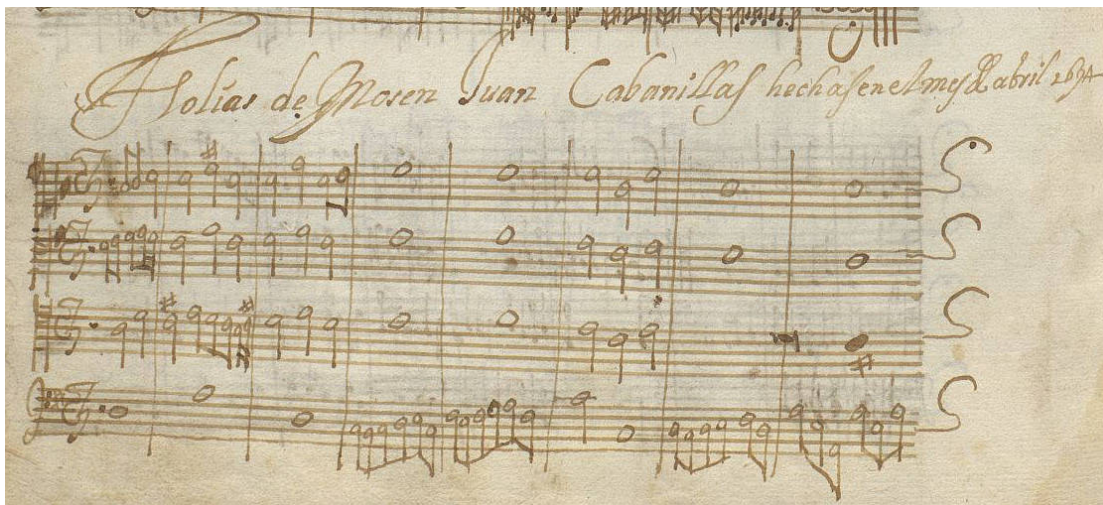 Folias de Mosen Juan Cabanillas hechas en el mes de abril 1694